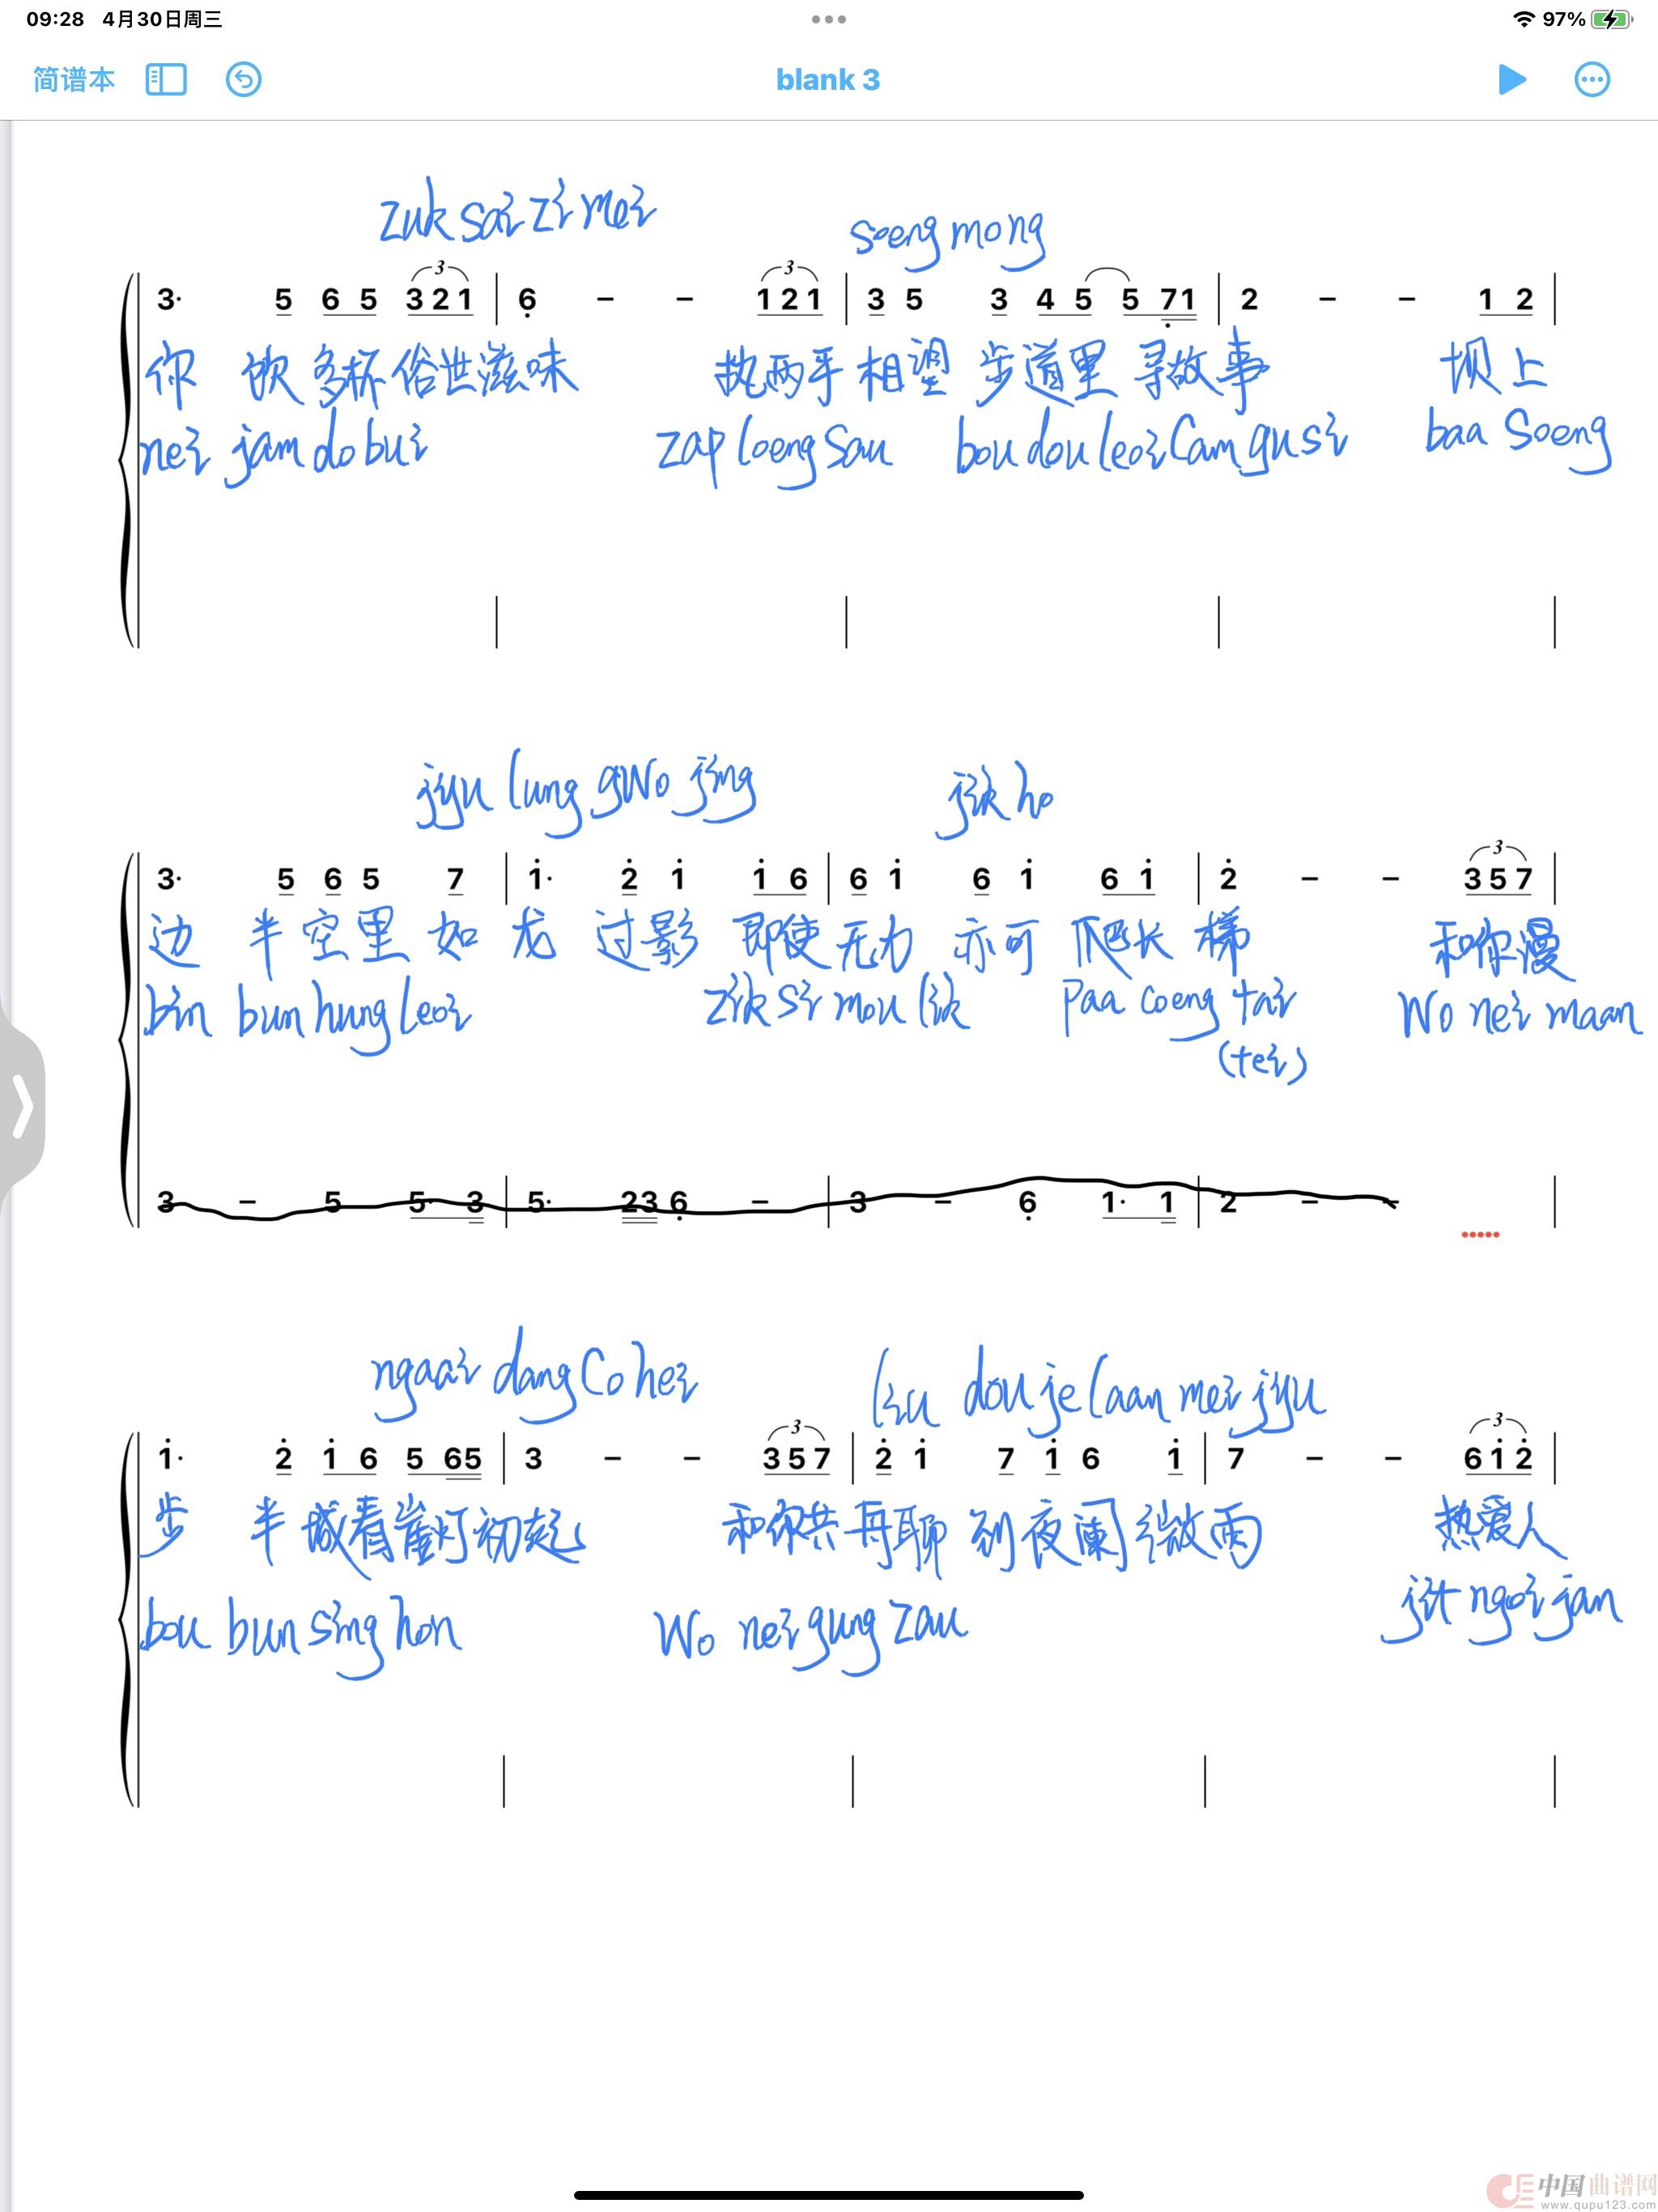 09:28 4月30日周三 97%
简谱本 blank 3
zuk sai zi mei soeng mong
3 3
3· 5 6 5 3 2 1 | 6 - - 1 2 1 | 3 5 3 4 5 5 7 1 | 2 - - 1 2 |
你 饮 多杯 俗世滋味 执两手相望 步道里 寻故事 坝上
nei jam do bui zap loeng sau bou dou leoi cam gu si baa soeng
jyu lung gwo jing jik ho
3
3· 5 6 5 7 | 1· 2 1 1 6 | 6 1 6 1 6 1 | 2 - - 3 5 7 |
边 半空里 如龙 过影 即使无力 亦可 爬长梯 和你漫
bin bun hung leoi zik si mou lik paa coeng tai wo nei maan
(tei)
3 - 5 5· 3 | 5· 2 3 6 - | 3 - 6 1· 1 | 2 - -
ngaai dang co hei liu dou je laan mei jyu
3 3
1· 2 1 6 5 6 5 | 3 - - 3 5 7 | 2 1 7 1 6 1 | 7 - - 6 1 2 |
步 半城看崖灯初起 和你共再聊 到夜阑微雨 热爱人
bou bun sing hon wo nei gung zau jit ngoi jan
中国曲谱网
www.qupu123.com